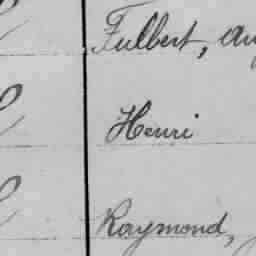 Fulbert,
Henri
Raymond,